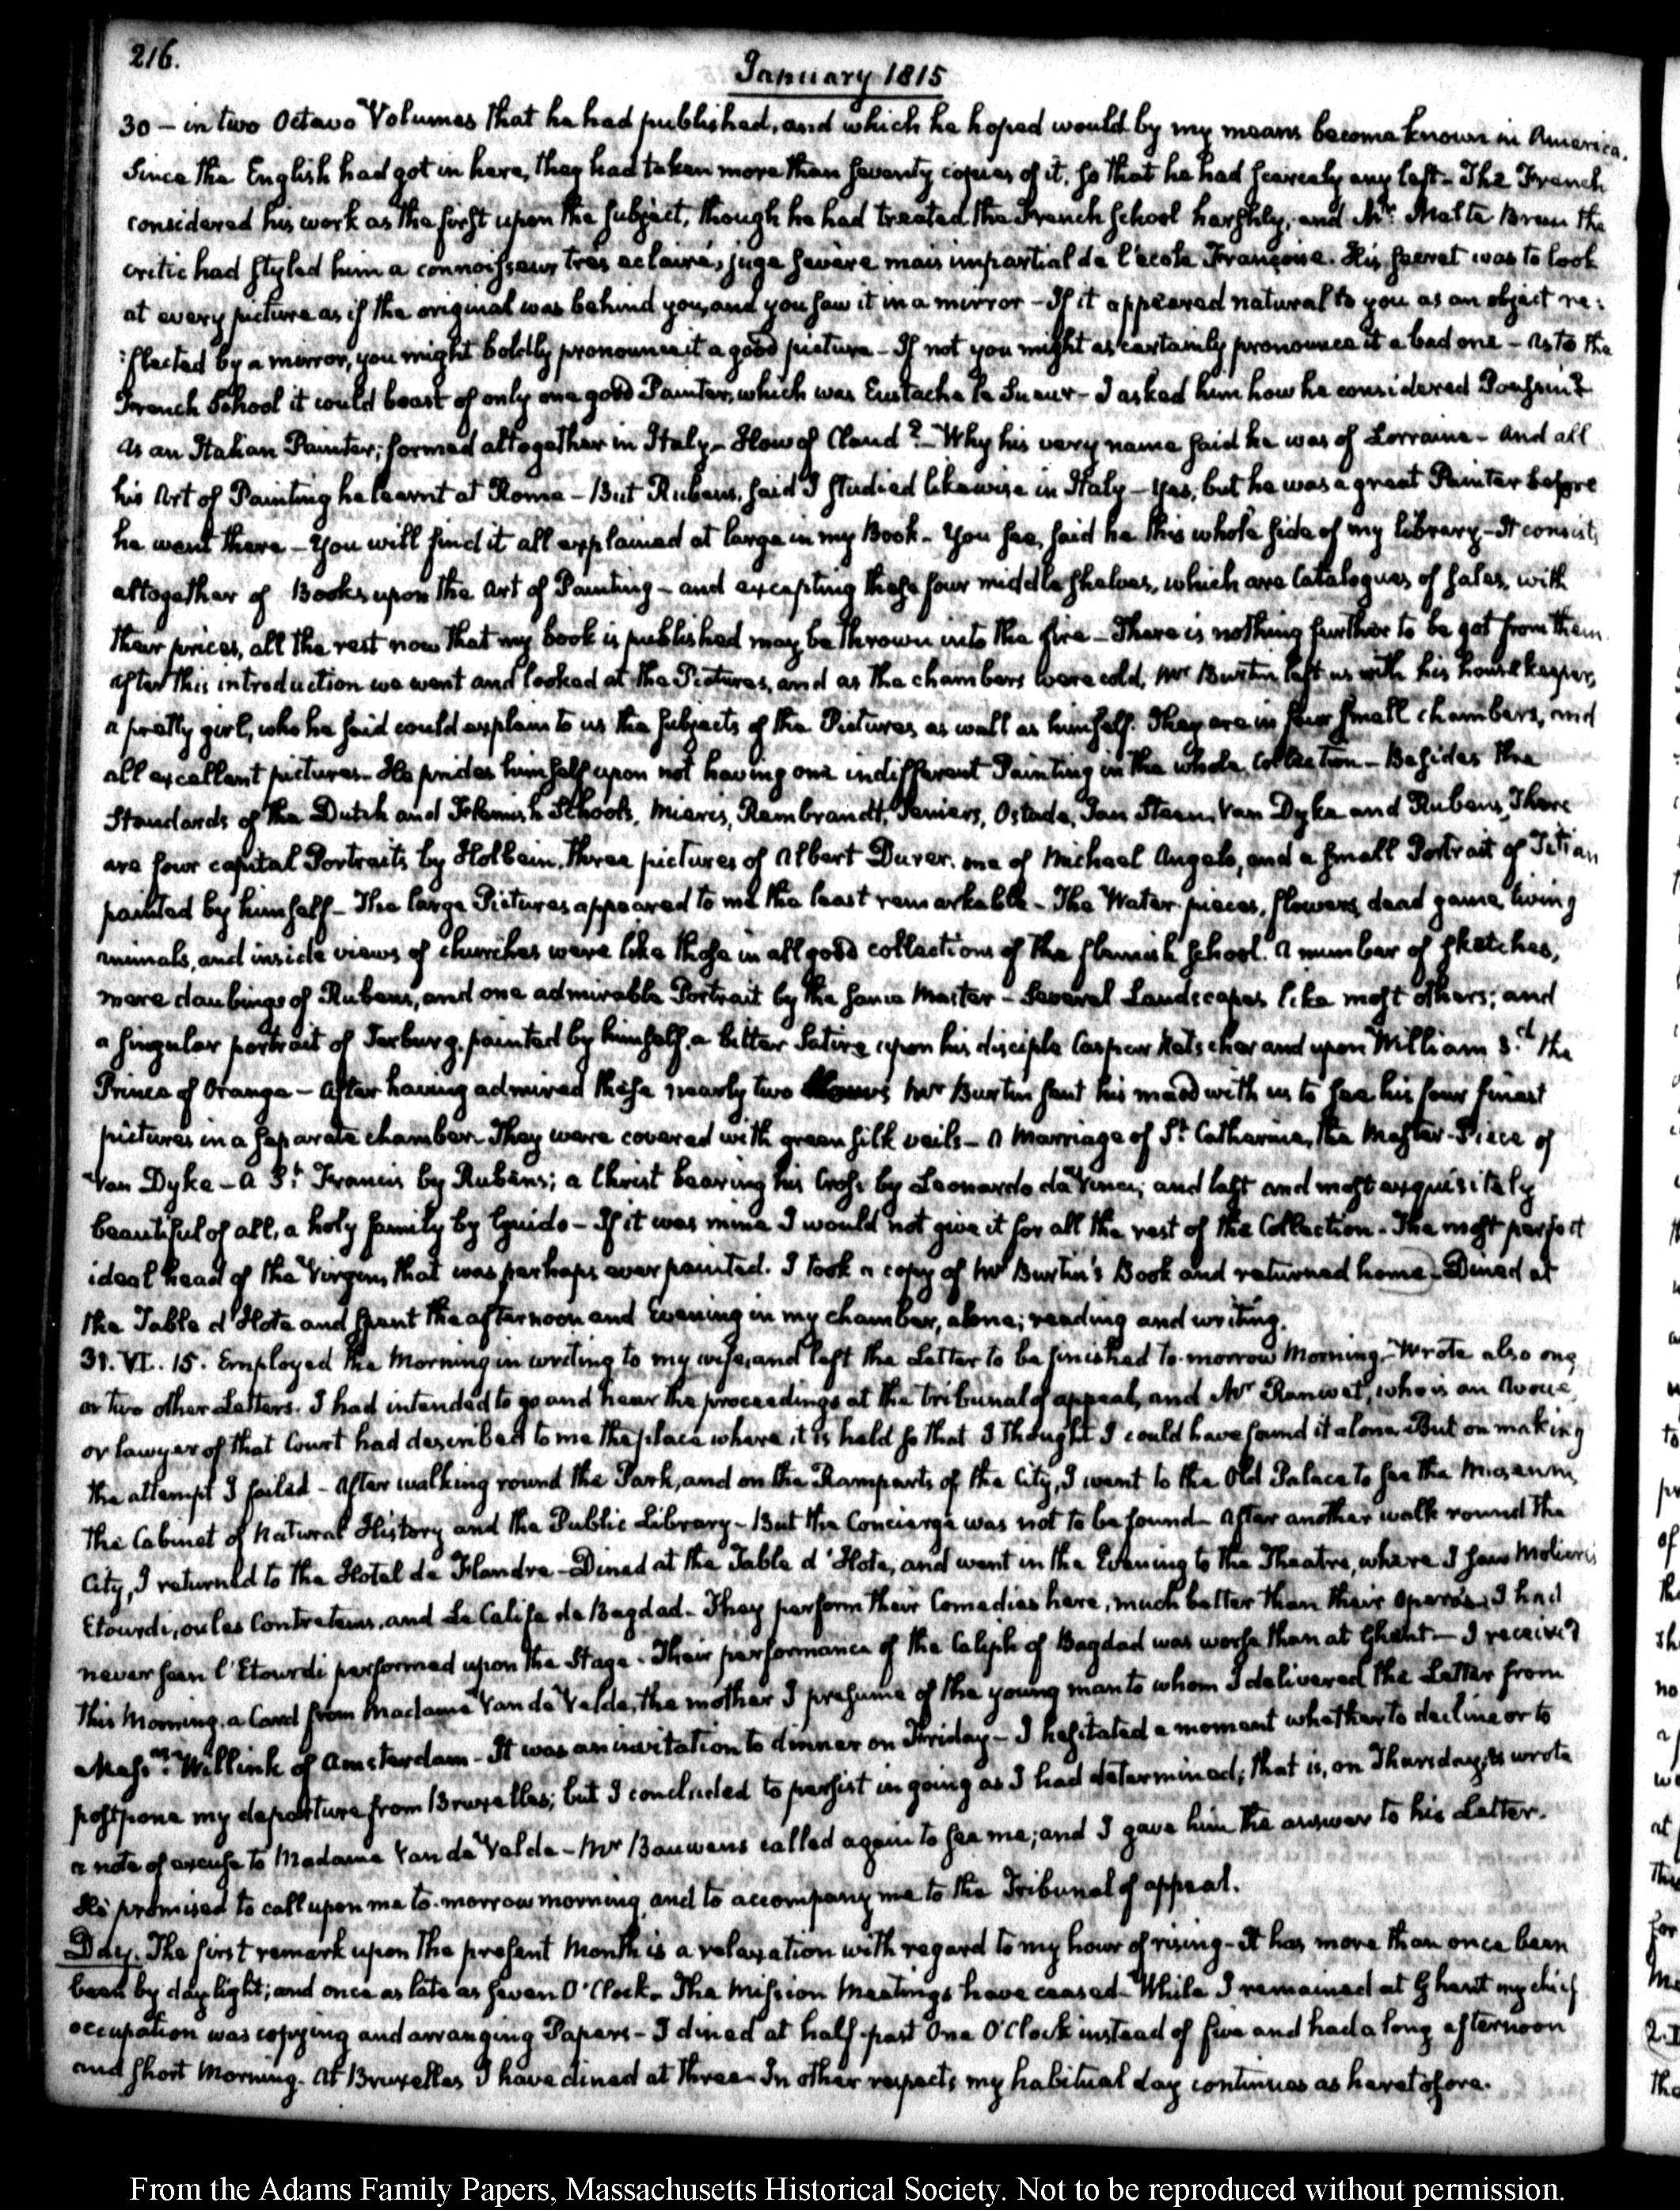 216.
January 1815
30 — in two Octavo Volumes that he had published, and which he hoped would by my means become known in America.
Since the English had got in here, they had taken more than seventy copies of it, so that he had scarcely any left - The French
considered his work as the first upon the subject, though he had treated the French School harshly, and Mr. Malte Brun the
critic had styled him a connoisseur très eclairé, juge sévère mais impartial de l'école Françoise. His secret was to look
at every picture as if the original was behind you, and you saw it in a mirror - If it appeared natural to you as an object re:
:flected by a mirror, you might boldly pronounce it a good picture - If not you might as certainly pronounce it a bad one - As to the
French School it could boast of only one good Painter, which was Eustache le Sueur - I asked him how he considered Poussin?
As an Italian Painter; formed altogether in Italy - How of Claud? - Why his very name said he was of Lorraine - and all
his Art of Painting he learnt at Rome - But Rubens, said I studied likewise in Italy - Yes; but he was a great Painter before
he went there - You will find it all explained at large in my Book - You see, said he this whole side of my library - It consists
altogether of Books upon the Art of Painting - and excepting these four middle shelves, which are Catalogues of sales, with
their prices, all the rest now that my book is published may be thrown into the fire - There is nothing further to be got from them.
After this introduction we went and looked at the Pictures, and as the chambers were cold, Mr Burtin left us with his housekeeper,
a pretty girl, who he said could explain to us the subjects of the Pictures as well as himself. They are in four small chambers, and
all excellent pictures - He prides himself upon not having one indifferent Painting in the whole Collection - Besides the
Standards of the Dutch and Flemish Schools, Mieris, Rembrandt, Teniers, Ostade, Jan Steen, Van Dyke and Rubens, There
are four capital Portraits by Holbein, three pictures of Albert Durer, one of Michael Angelo, and a small Portrait of Titian
painted by himself - The large Pictures appeared to me the least remarkable - The Water pieces, flowers, dead game, living
animals, and inside views of churches were like those in all good collections of the flemish school. A number of sketches,
mere daubings of Rubens, and one admirable Portrait by the same Master - Several Landscapes like most others; and
a singular portrait of Terburg, painted by himself, a bitter Satire upon his disciple Caspar Netscher and upon William 3.d the
Prince of Orange - After having admired these nearly two hours Mr Burtin sent his maid with us to see his four finest
pictures in a separate chamber. They were covered with green silk veils - A Marriage of St. Catharine, the Master-Piece of
Van Dyke - A St. Francis by Rubens; a Christ bearing his Cross by Leonardo da Vinci; and last and most exquisitely
beautiful of all, a holy family by Guido - If it was mine I would not give it for all the rest of the Collection - The most perfect
ideal head of the Virgin, that was perhaps ever painted. I took a copy of Mr Burtin's Book and returned home - Dined at
the Table d'Hote and spent the afternoon and Evening in my chamber, alone; reading and writing.
31. VI. 15. Employed the Morning in writing to my wife, and left the Letter to be finished to-morrow Morning - Wrote also one
or two other Letters. I had intended to go and hear the proceedings at the tribunal of appeal, and Mr Ranwet, who is an Avoué,
or lawyer of that Court had described to me the place where it is held so that I thought I could have found it alone. But on making
the attempt I failed - After walking round the Park, and on the Ramparts of the City, I went to the Old Palace to see the Museum,
the Cabinet of Natural History and the Public Library - But the Concierge was not to be found - After another walk round the
City, I returned to the Hotel de Flandre - Dined at the Table d'Hote, and went in the Evening to the Theatre, where I saw Moliere's
Etourdi, ou les Contretems, and Le Calife de Bagdad - They perform their Comedies here, much better than their Operas - I had
never seen l'Etourdi performed upon the Stage - Their performance of the Caliph of Bagdad was worse than at Ghent - I received
this Morning, a Card from Madame Van de Velde, the mother I presume of the young man to whom I delivered the Letter from
Messrs. Willink of Amsterdam - It was an invitation to dinner on Friday - I hesitated a moment whether to decline or to
postpone my departure from Bruxelles; but I concluded to persist in going as I had determined; that is, on Thursday, & wrote
a note of excuse to Madame Van de Velde - Mr Bauwens called again to see me; and I gave him the answer to his Letter.
He promised to call upon me to-morrow morning and to accompany me to the Tribunal of appeal.
Day. The first remark upon the present Month is a relaxation with regard to my hour of rising - It has more than once been
been by day light; and once as late as seven O'Clock. The Mission Meetings have ceased - While I remained at Ghent my chief
occupation was copying and arranging Papers - I dined at half-past One O'Clock instead of five and had a long afternoon
and short Morning. At Bruxelles I have dined at three - In other respects my habitual day continues as heretofore.
From the Adams Family Papers, Massachusetts Historical Society. Not to be reproduced without permission.